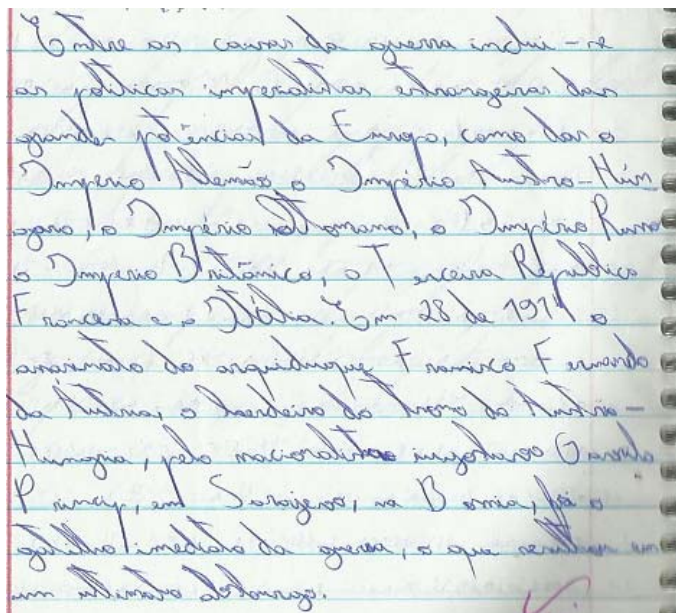 Entre as causas da guerra inclui-se
as politicas imperialistas estrangeiras das
grandes potências da Europa, como dar o
Imperio Alemão, o Império Austro-Hún
garo, o Império Otomano, o Império Russo
o Imperio Britânico, a Terceira República
Francesa e a Itália. Em 28 de 1914 o
assassinato do arquiduque Francisco Fernando
da Áutria, o herdeiro do trono da Áutria-
Hungria, pelo nacionalista iugoslavo Gavrilo
Princip, em Sarajevo, na Bósnia, foi o
gatilho imediato da guerra, o que resultou em
um ultimato